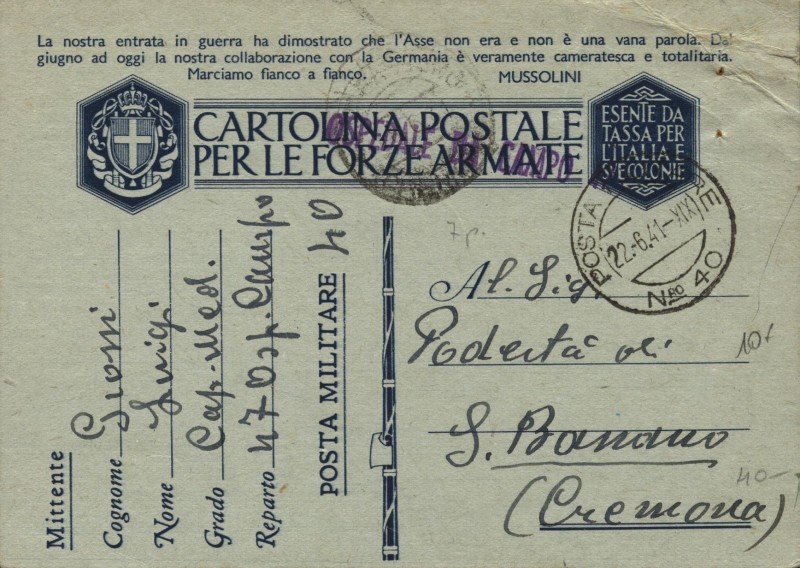 La nostra entrata in guerra ha dimostrato che l'Asse non era e non è una vana parola. Dal
giugno ad oggi la nostra collaborazione con la Germania è veramente cameratesca e totalitaria.
Marciamo fianco a fianco. MUSSOLINI
CARTOLINA POSTALE
PER LE FORZE ARMATE
ESENTE DA
TASSA PER
L'ITALIA E
SVE COLONIE
OSPEDALE DA CAMPO
POSTA MILITARE
22.6.41-XIX
Nro 40
7 p.
Mittente
Cognome
Nome Luigi
Grado Cap. Med.
Reparto 47 Osp. Campo
POSTA MILITARE 40
Al Sig.
Podestà di
S. Bassano
(Cremona)
10
40-